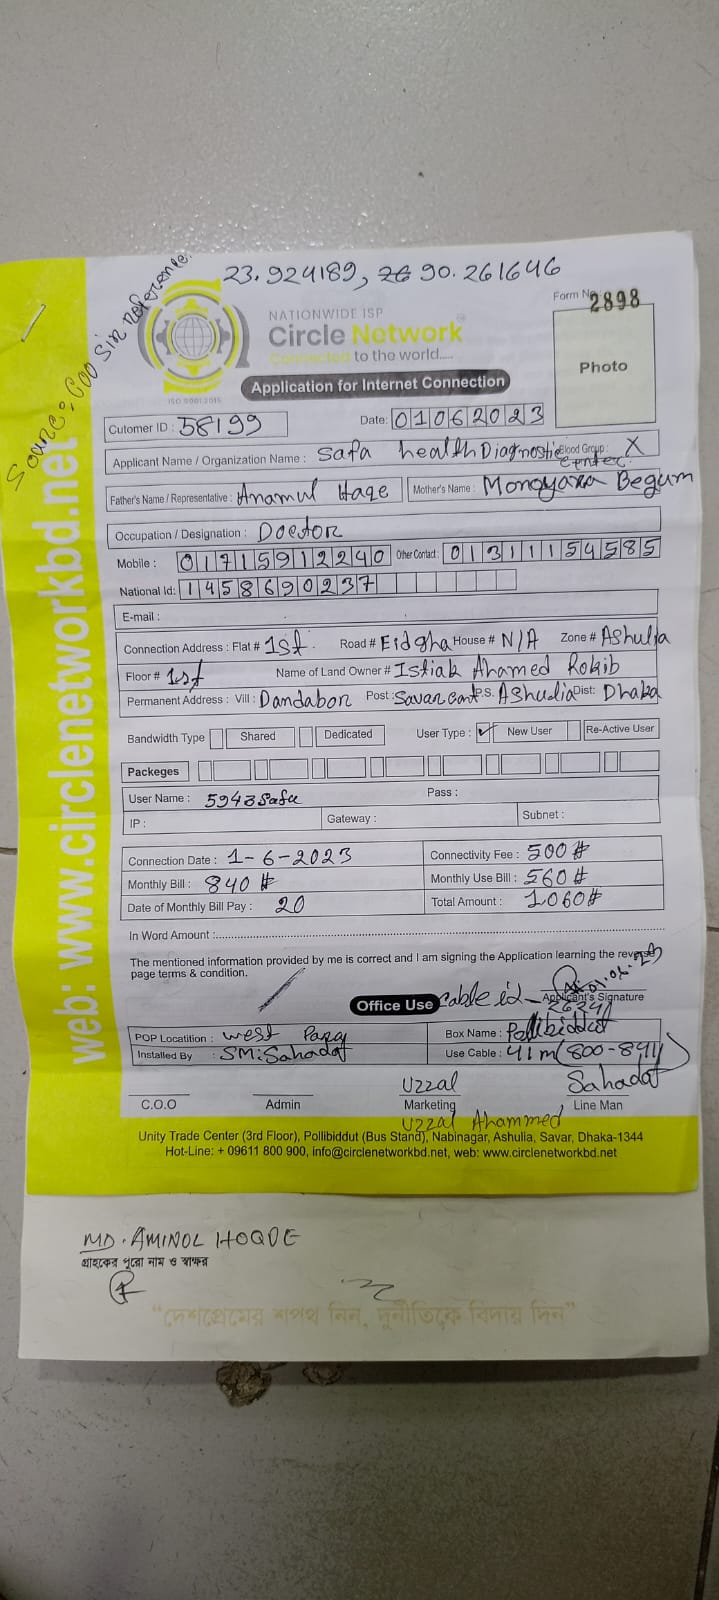 23.924189, 90.261646
Source: COO Sir reference.
Form No: 2898
NATIONWIDE ISP
Circle Network
Connected to the world.....
ISO 9001:2015
Photo
Application for Internet Connection
Cutomer ID : 58199 Date: 01062023
Applicant Name / Organization Name : Safa health Diagnostic center. Blood Group : X
Father's Name / Representative : Anamul Haqe Mother's Name : Monoyara Begum
Occupation / Designation : Doctor
Mobile : 01715912240 Other Contact : 01311154585
National Id: 1458690237
E-mail :
Connection Address : Flat # 1st. Road # Eidgha House # N/A Zone # Ashulia
Floor # 1st Name of Land Owner # Istiak Ahamed Rokib
Permanent Address : Vill : Dandabor Post : Savar cant P.S. Ashulia Dist: Dhaka
Bandwidth Type Shared Dedicated User Type : ✓ New User Re-Active User
Packeges
User Name : 5943safa Pass :
IP : Gateway : Subnet :
Connection Date : 1-6-2023 Connectivity Fee : 500#
Monthly Bill : 840# Monthly Use Bill : 560#
Date of Monthly Bill Pay : 20 Total Amount : 1060#
In Word Amount :
The mentioned information provided by me is correct and I am signing the Application learning the reverse
page terms & condition.
01.06.23
Office Use cable id - Applicant's Signature
POP Locatition : west Box Name : Pollibiddut
Installed By : SM: Sahadat Use Cable : 41m (800-841)
Uzzal Sahadat
C.O.O Admin Marketing Line Man
Uzzal Ahammed
Unity Trade Center (3rd Floor), Pollibiddut (Bus Stand), Nabinagar, Ashulia, Savar, Dhaka-1344
Hot-Line: + 09611 800 900, info@circlenetworkbd.net, web: www.circlenetworkbd.net
web: www.circlenetworkbd.net
MD. AMINOL HOQUE
গ্রাহকের পুরো নাম ও স্বাক্ষর
“দেশপ্রেমের শপথ নিন, দুর্নীতিকে বিদায় দিন”